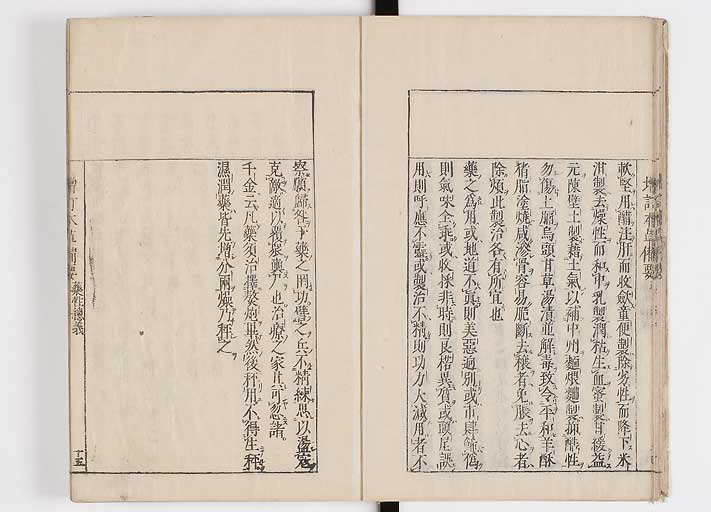 軟堅用醋注肝而收斂童便製除劣性而降下米
泔製去燥性而和中乳製潤枯生血蜜製甘緩益
元陳壁土製藉土氣以補中州麵煨麵製抑酷性
勿傷上膈烏頭甘草湯漬並解毒致令平和羊酥
猪脂塗燒咸滲骨容易脆斷去穰者免脹去心者
除煩此製治各有所宜也
藥之為用或地道不真則美惡迥別或市肆飾偽
則氣味全乖或收採非時則良楛異質或頭尾誤
用則呼應不靈或製治不精則功力大減用者不
察顧歸咎于藥之罔功譬之兵不精練思以盪寇
克敵適以覆衆輿尸也治療之家其可忽諸
千金云凡藥須治擇熬炮畢然後秤用不得生秤
濕潤藥皆先增分兩燥乃秤之
增訂本草備要
藥性總義
十五